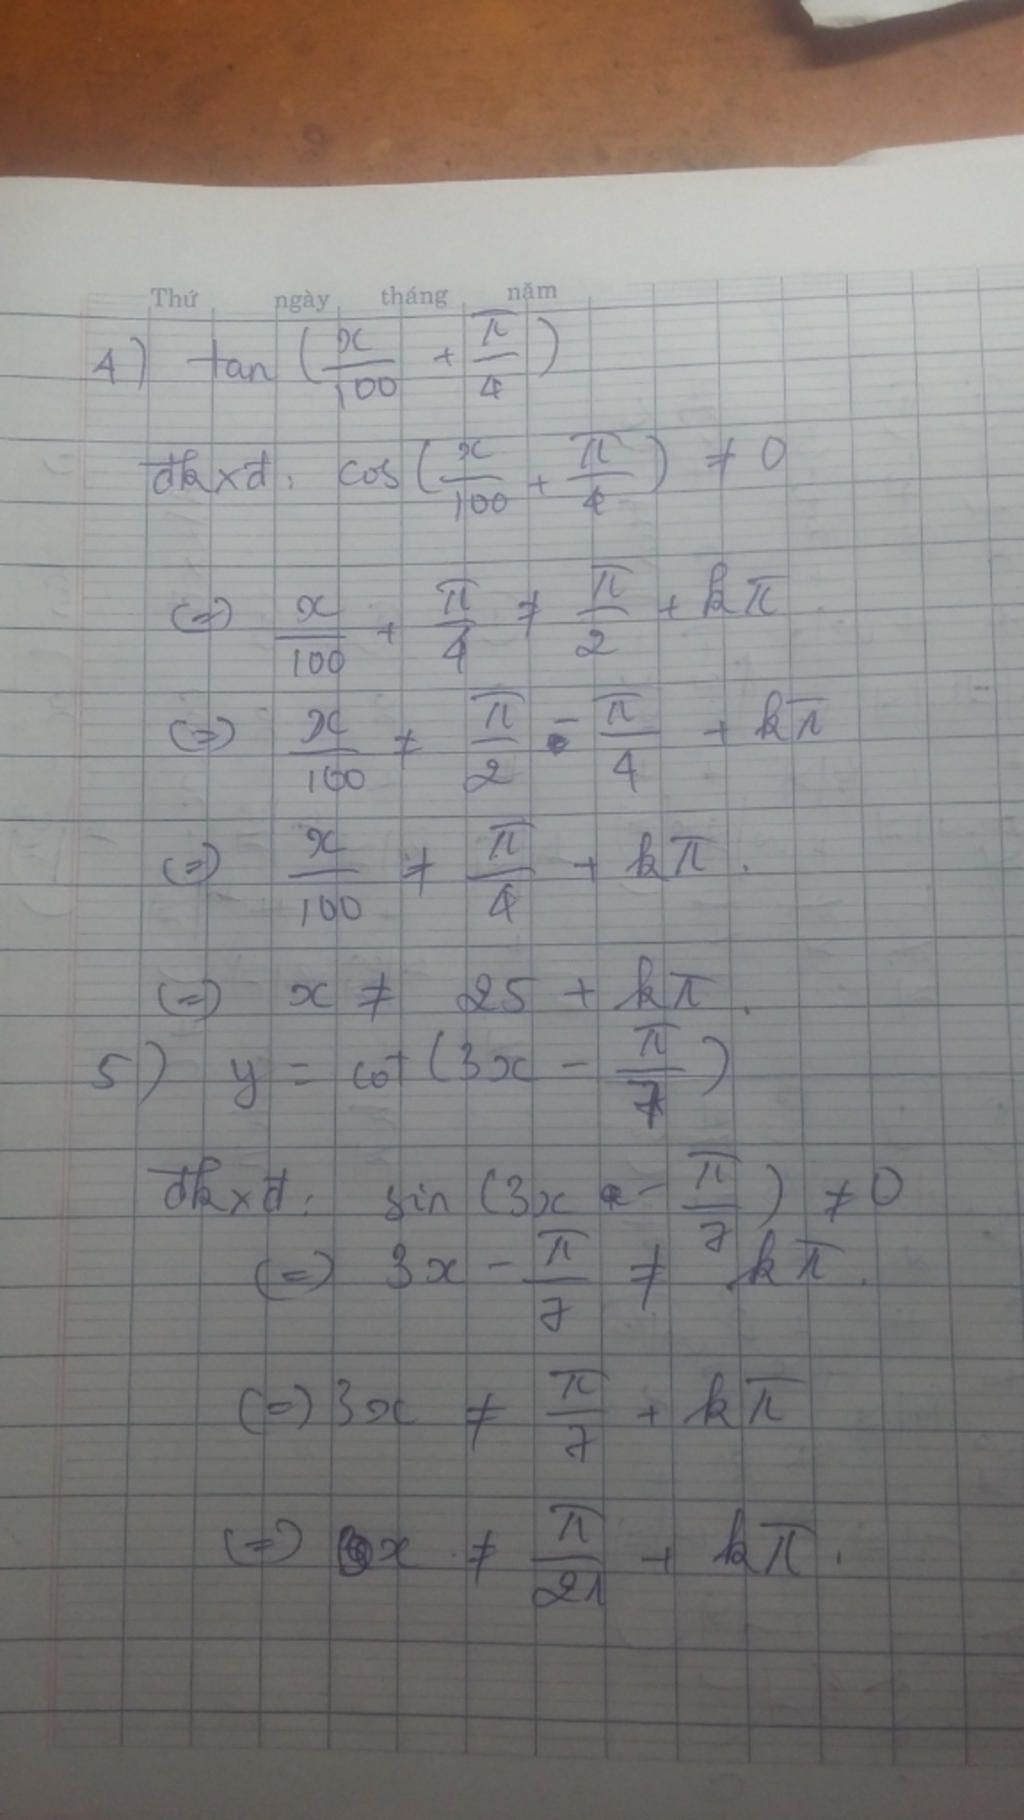 Thứ ngày tháng năm
4) tan (x/100 + π/4)
đkxđ: cos (x/100 + π/4) ≠ 0
(=) x/100 + π/4 ≠ π/2 + kπ
(=) x/100 ≠ π/2 - π/4 + kπ
(=) x/100 ≠ π/4 + kπ.
(=) x ≠ 25 + kπ.
5) y = cot (3x - π/7)
đkxđ: sin (3x - π/7) ≠ 0
(=) 3x - π/7 ≠ kπ.
(=) 3x ≠ π/7 + kπ
(=) x ≠ π/21 + kπ.